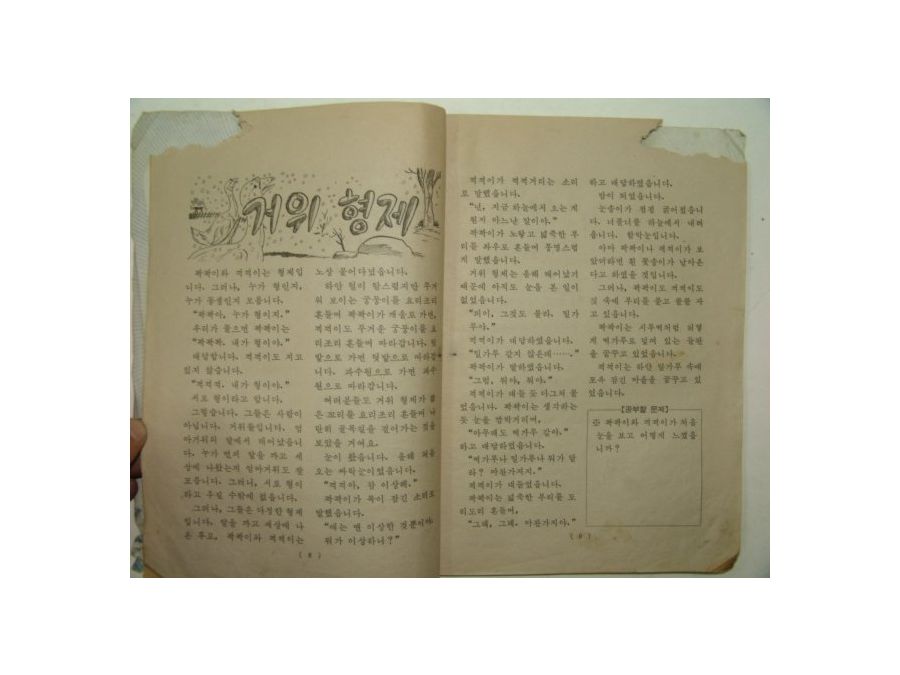 거위 형제
꽉꽉이와 꺽꺽이는 형제입
니다. 그러나, 누가 형인지,
누가 동생인지 모릅니다.
"꽉꽉아, 누가 형이지."
우리가 물으면 꽉꽉이는
"꽉꽉꽉. 내가 형이야."
대답합니다. 꺽꺽이도 지고
있지 않습니다.
"꺽꺽꺽. 내가 형이야."
서로 형이라고 합니다.
그렇습니다. 그들은 사람이
아닙니다. 거위들입니다. 엄
마거위의 알에서 태어났습니
다. 누가 먼저 알을 까고 세
상에 나왔는지 엄마거위도 잘
모릅니다. 그러니, 서로 형이
라고 우길 수밖에 없습니다.
그러나, 그들은 다정한 형제
입니다. 알을 까고 세상에 나
온 후로, 꽉꽉이와 꺽꺽이는
노상 붙어다녔읍니다.
하얀 털이 탐스럽지만 무거
워 보이는 궁둥이를 요리조리
흔들며 꽉꽉이가 개울로 가면,
꺽꺽이도 무거운 궁둥이를 요
리조리 흔들며 따라갑니다. 텃
밭으로 가면 텃밭으로 따라갑
니다. 과수원으로 가면 과수
원으로 따라갑니다.
여러분들도 거위 형제가 짧
은 꼬리를 요리조리 흔들며 나
란히 골목길을 걸어가는 것을
보았을 거여요.
눈이 왔읍니다. 올해 처음
오는 싸락눈이었읍니다.
"꺽꺽아, 참 이상해."
꽉꽉이가 목이 잠긴 소리로
말했읍니다.
"애는 맨 이상한 것뿐이야.
뭐가 이상하니?"
( 8 )
꺽꺽이가 꺽꺽거리는 소리
로 말했읍니다.
"넌, 지금 하늘에서 오는 게
뭔지 아느냔 말이야."
꽉꽉이가 노랗고 넓죽한 부
리를 좌우로 흔들며 퉁명스럽
게 말했읍니다.
거위 형제는 올해 태어났기
때문에 아직도 눈을 본 일이
없었읍니다.
"피이, 그것도 몰라. 밀가
루야."
꺽꺽이가 대답하였읍니다.
"밀가루 같지 않은데……."
꽉꽉이가 말하였읍니다.
"그럼, 뭐야, 뭐야."
꺽꺽이가 대들 듯 다그쳐 물
었읍니다. 꽉꽉이는 생각하는
듯 눈을 깜박거리며,
"아무래도 떡가루 같아."
하고 대답하였읍니다.
"떡가루나 밀가루나 뭐가 달
라? 마찬가지지."
꺽꺽이가 대들었읍니다.
꽉꽉이는 넓죽한 부리를 도
리도리 흔들며,
"그래, 그래. 마찬가지야."
하고 대답하였읍니다.
밤이 되었읍니다.
눈송이가 점점 굵어졌읍니
다. 너풀너풀 하늘에서 내려
옵니다. 함박눈입니다.
아마 꽉꽉이나 꺽꺽이가 보
았더라면 흰 꽃송이가 날아온
다고 하였을 것입니다.
그러나, 꽉꽉이도 꺽꺽이도
짚 속에 부리를 묻고 쿨쿨 자
고 있읍니다.
꽉꽉이는 시루떡처럼 허옇
게 떡가루로 덮여 있는 들판
을 꿈꾸고 있었읍니다.
꺽꺽이는 하얀 밀가루 속에
포옥 잠긴 마을을 꿈꾸고 있
었읍니다.
【공부할 문제】
꽉꽉이와 꺽꺽이가 처음
눈을 보고 어떻게 느꼈읍
니까?
( 9 )